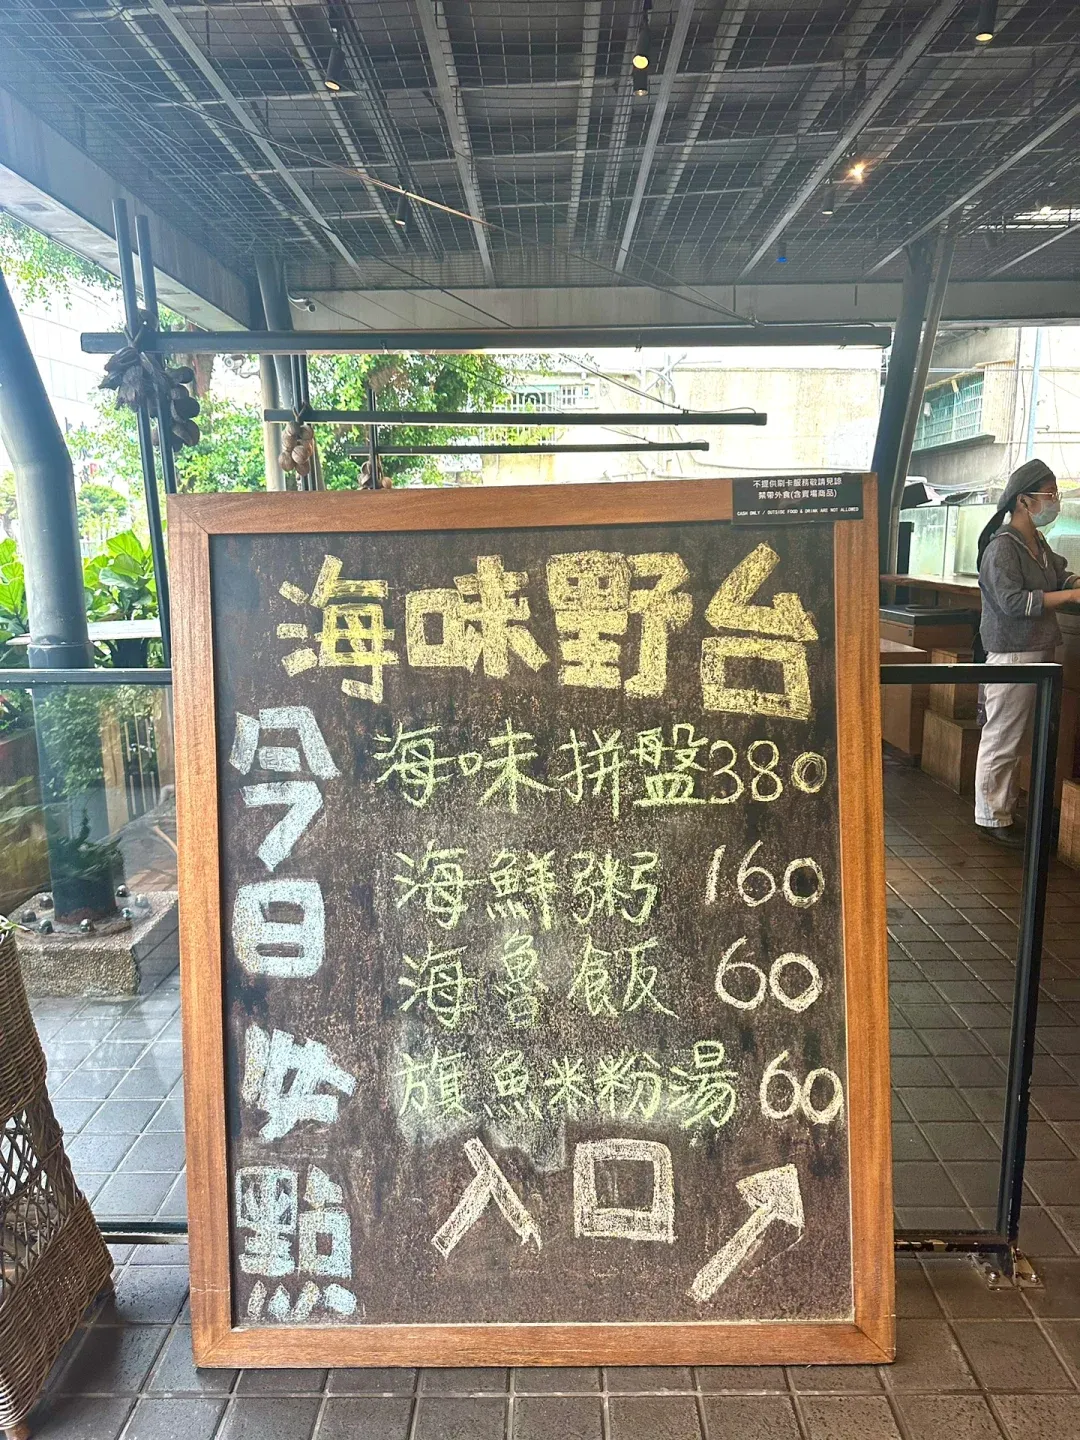 不提供刷卡服務敬請見諒
禁帶外食(含賣場商品)
CASH ONLY / OUTSIDE FOOD & DRINK ARE NOT ALLOWED
海味野台
今日好點
海味拼盤380
海鮮粥 160
海魯飯 60
旗魚米粉湯 60
入口↗